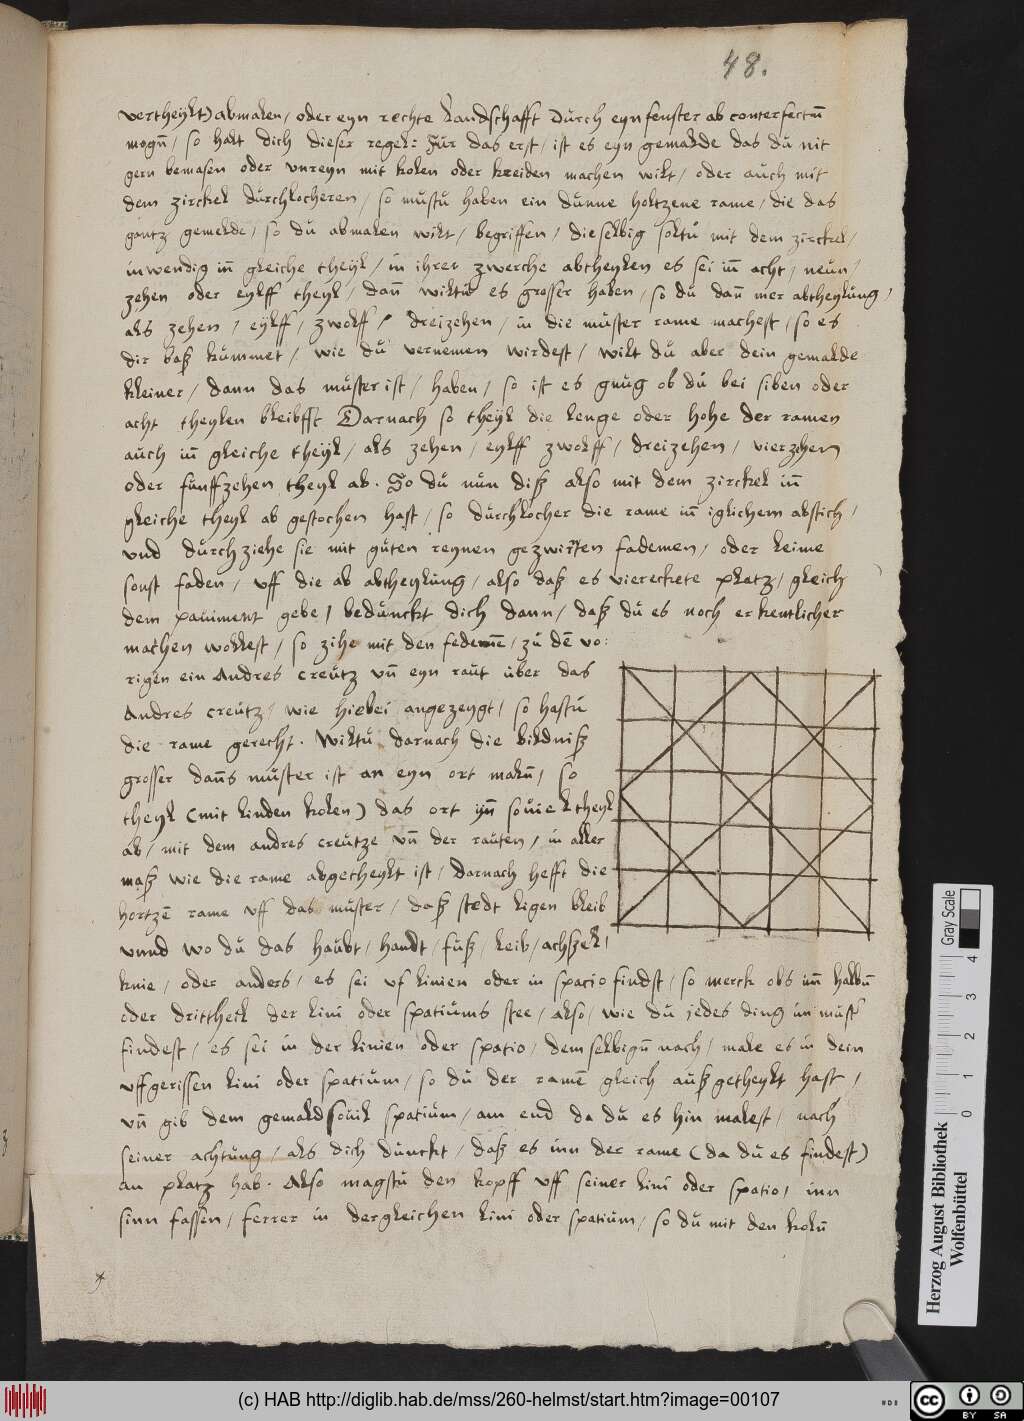 48.
vertheylt) abmalen / oder eyn rechte Landschafft durch eyn fenster ab conterfectū
mogū / so halt dich dieser regel: Fur das erst / ist es eyn gemalde das du nit
gern bemasen oder vnreyn mit kolen oder kreiden machen wilt / oder auch mit
dem zirckel durchlocheren / so mustu haben ein dunne holtzene rame / die das
gantz gemelde / so du abmalen wilt / begriffen / dieselbig soltu mit dem zirckel /
inwendig in̄ gleiche theyl / in ihrer zwerche abtheylen es sei in̄ acht / neun /
zehen oder eylff theyl / dan̄ wiltus es grosser haben / so du dan̄ mer abtheylung /
als zehen / eylff / zwolff / dreizehen / in die muster rame machest / so es
dir baß kummet / wie du vernemen wirdest / wilt du aber dein gemalde
kleiner / dann das muster ist / haben / so ist es gnug ob du bei siben oder
acht theylen bleibst Darnach so theyl die lenge oder hohe der ramen
auch in̄ gleiche theyl / als zehen / eylff zwolff / dreizehen / vierzehen
oder funffzehen theyl ab. So du nun diß also mit dem zirckel in̄
gleiche theyl ab gestochen hast / so durchlocher die rame in̄ iglichem abstich /
vnd durchziehe sie mit guten reynen gezwirten fademen / oder leime
sonst faden / vff die ab abtheylung / also daß es viereckete platz / gleich
dem pauiment gebe / beduncket dich dann / daß du es noch erkentlicher
machen wollest / so zihe mit den fedemē / zu dē vo:
rigen ein Andres creutz vn̄ eyn raut uber das
Andres creutz / wie hiebei angezeygt / so hastu
die rame gerecht. Wiltu darnach die bildniß
grosser dan̄s muster ist an eyn ort malū / so
theyl (mit linden kolen) das ort ijn̄ souiel theyl
ab / mit dem andres creutze vn̄ der rauten / in aller
maß wie die rame abgetheylt ist / darnach hefft die
hortzē rame vff das muster / daß stedt ligen bleib
vnnd wo du das haubt / handt / fuß / leib / achßel /
knie / oder anders / es sei vf linien oder in spacio findst / so merck obs im̄ halbū
oder drittheil der lini oder spatiums stee / also / wie du jedes ding im muster
findest / es sei in der linien oder spatio / demselbigū nach / male es in dein
vffgerissen lini oder spatium / so du der ramē gleich auß getheylt hast /
vn̄ gib dem gemald souil spatium / am end da du es hin malest / nach
seiner achtung / als dich dunckt / daß es inn der rame (da du es findest)
an platz hab. Also magstu den kopff vff seiner lini oder spatio / inn
sinn fassen / ferrer in dergleichen lini oder spatium / so du mit den kolū
Gray Scale
0 1 2 3 4
Herzog August Bibliothek
Wolfenbüttel
(c) HAB http://diglib.hab.de/mss/260-helmst/start.htm?image=00107
cc BY SA